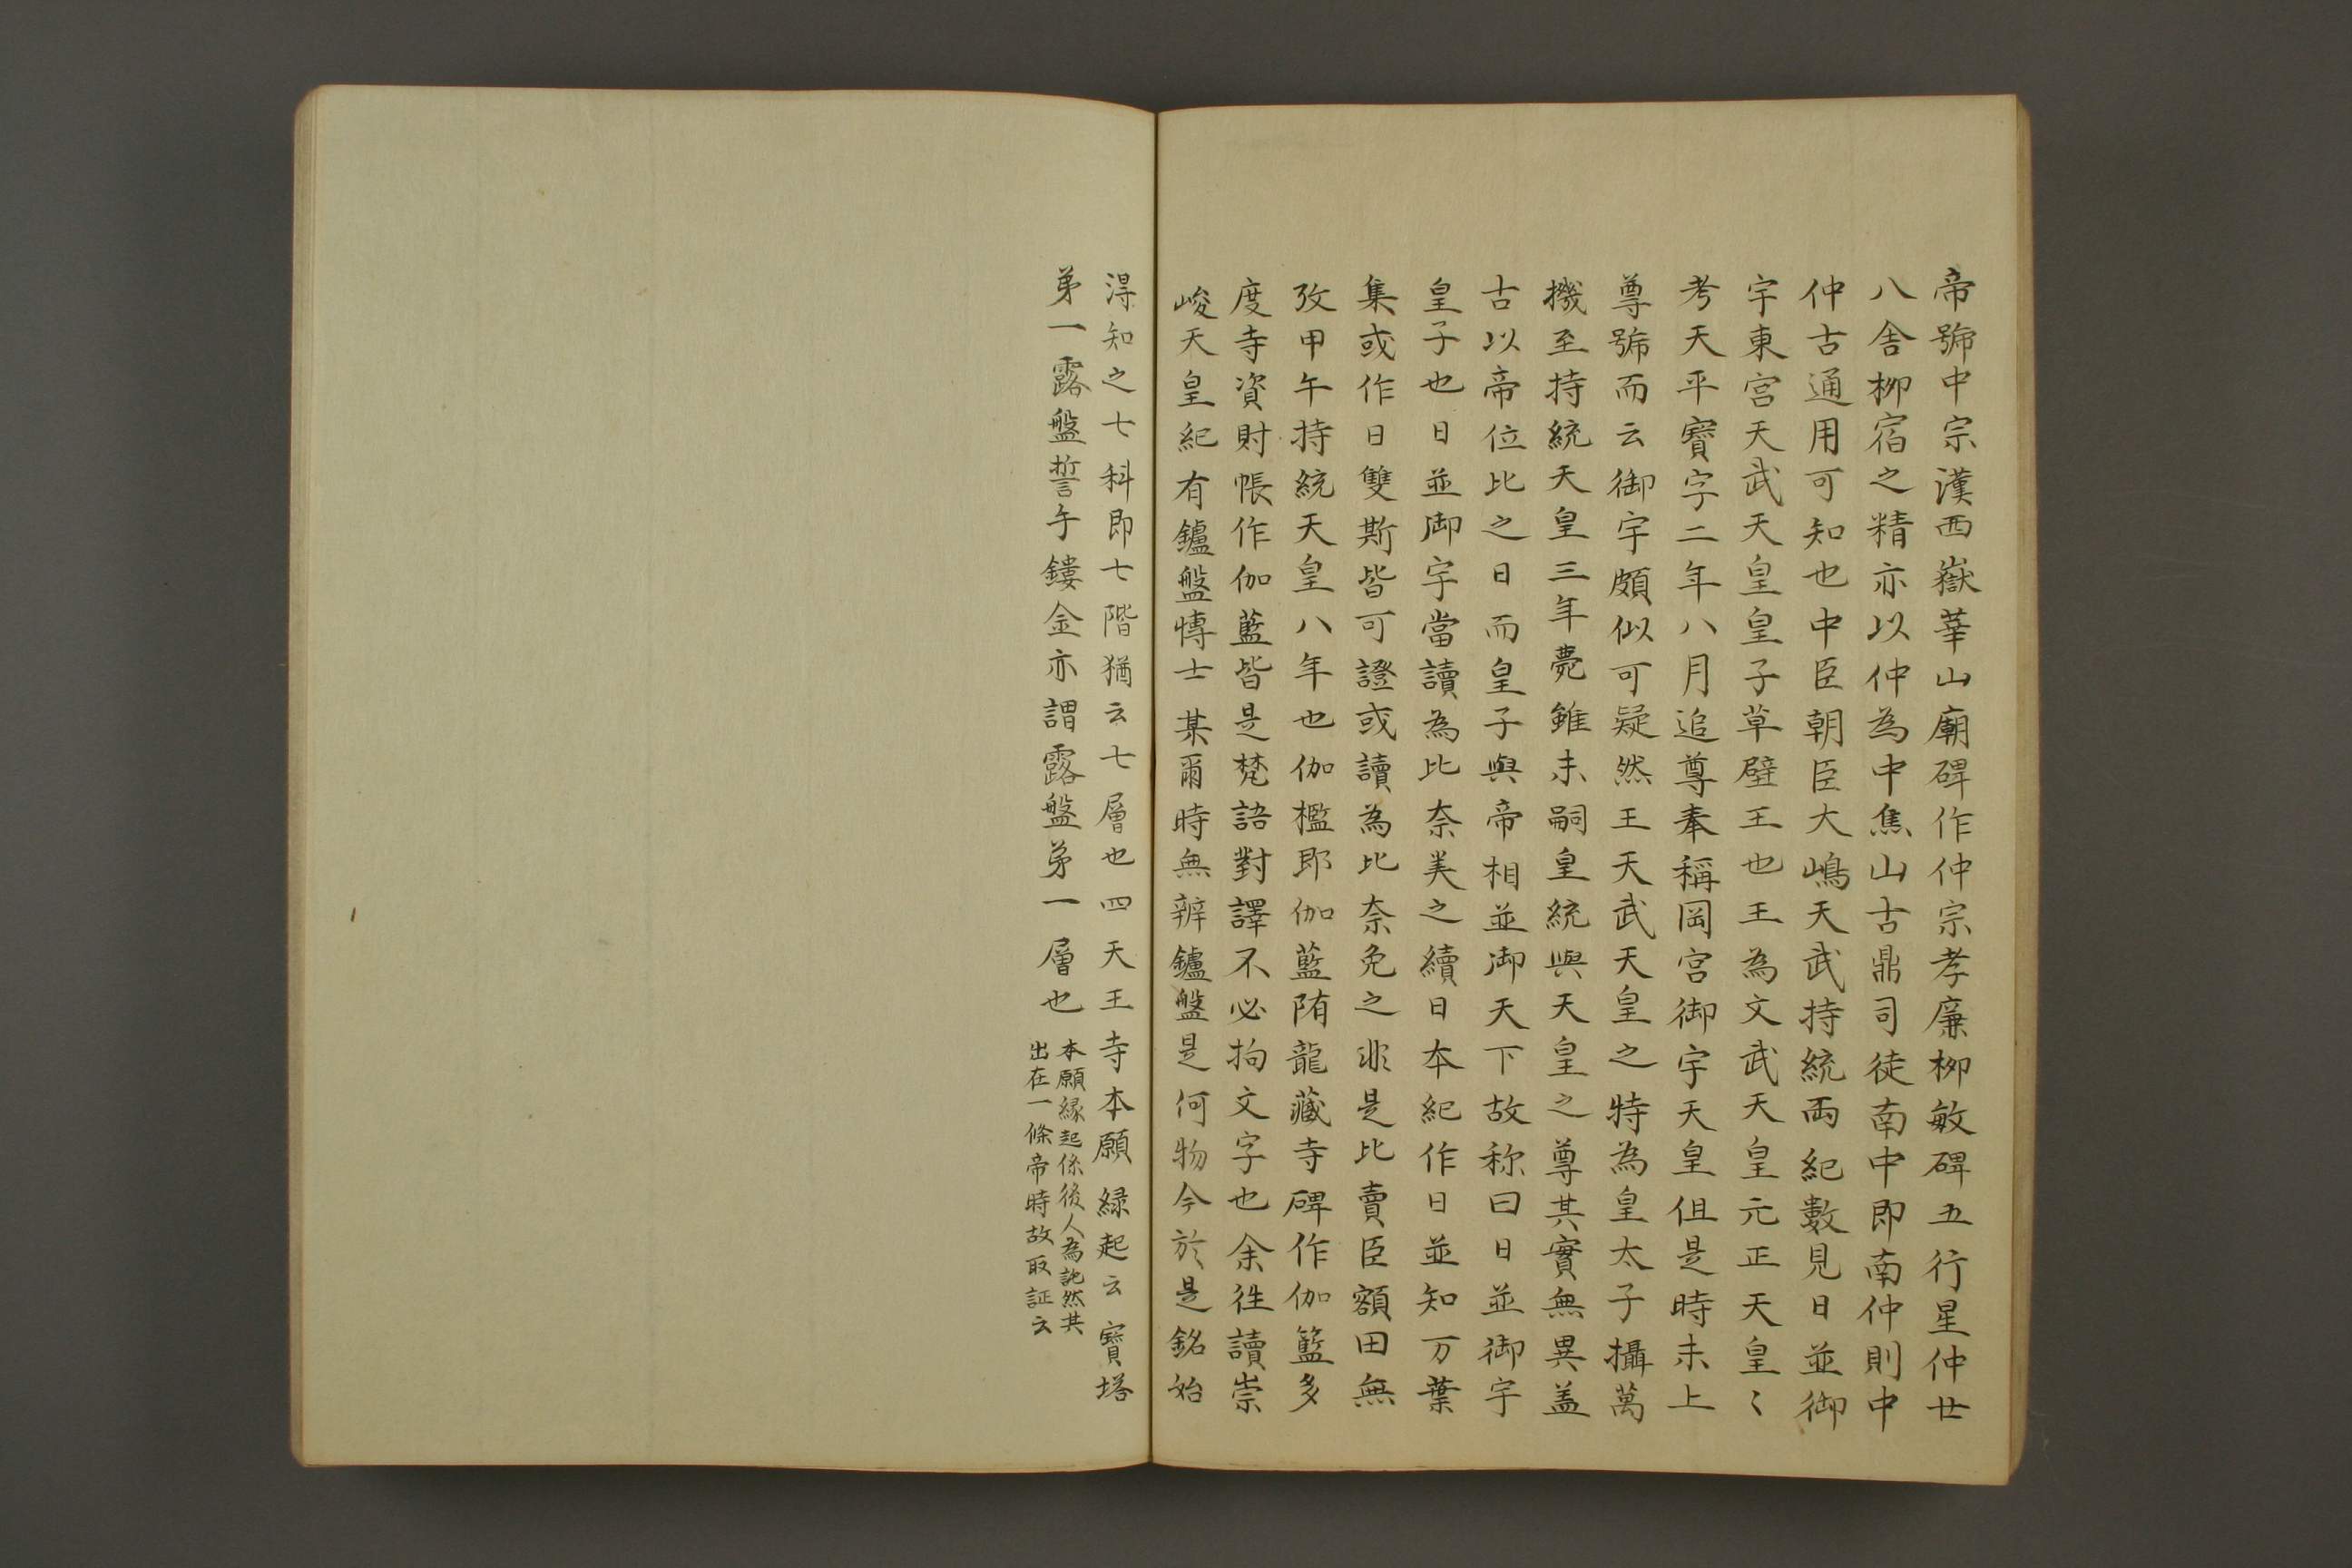 帝號中宗漢西嶽華山廟碑作仲宗孝廉柳敏碑五行星仲廿
八舍柳宿之精亦以仲為中焦山古鼎司徒南中即南仲則中
仲古通用可知也中臣朝臣大嶋天武持統両紀數見日並御
宇東宮天武天皇皇子草壁王也王為文武天皇元正天皇〻
考天平寶字二年八月追尊奉稱岡宮御宇天皇但是時未上
尊號而云御宇頗似可疑然王天武天皇之特為皇太子攝萬
機至持統天皇三年薨雖未嗣皇統與天皇之尊其實無異盖
古以帝位比之日而皇子與帝相並御天下故称曰日並御宇
皇子也日並御宇當讀為比奈美之續日本紀作日並知万葉
集或作日雙斯皆可證或讀為比奈免之非是比賣臣額田無
攷甲午持統天皇八年也伽檻即伽藍陏龍藏寺碑作伽籃多
度寺資財帳作伽藍皆是梵語對譯不必拘文字也余徃讀崇
峻天皇紀有鑪盤博士某爾時無辨鑪盤是何物今於是銘始
淂知之七科即七階猶云七層也四天王寺本願縁起云寶塔
苐一露盤誓手鏤金亦謂露盤苐一層也
本願縁起係後人為託然共
出在一條帝時故取証云